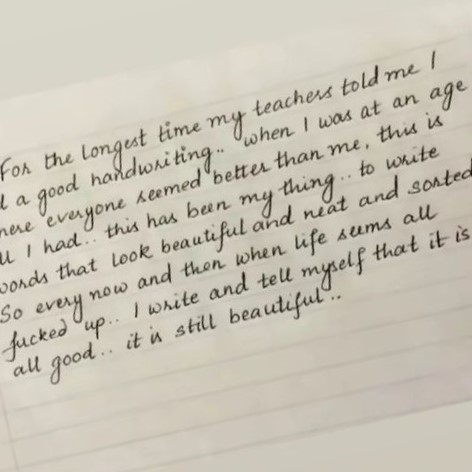 For the longest time my teachers told me I
a good handwriting.. when I was at an age
everyone seemed better than me, this is
I had.. this has been my thing.. to write
words that look beautiful and neat and sorted
So every now and then when life seems all
fucked up.. I write and tell myself that it is
all good.. it is still beautiful..